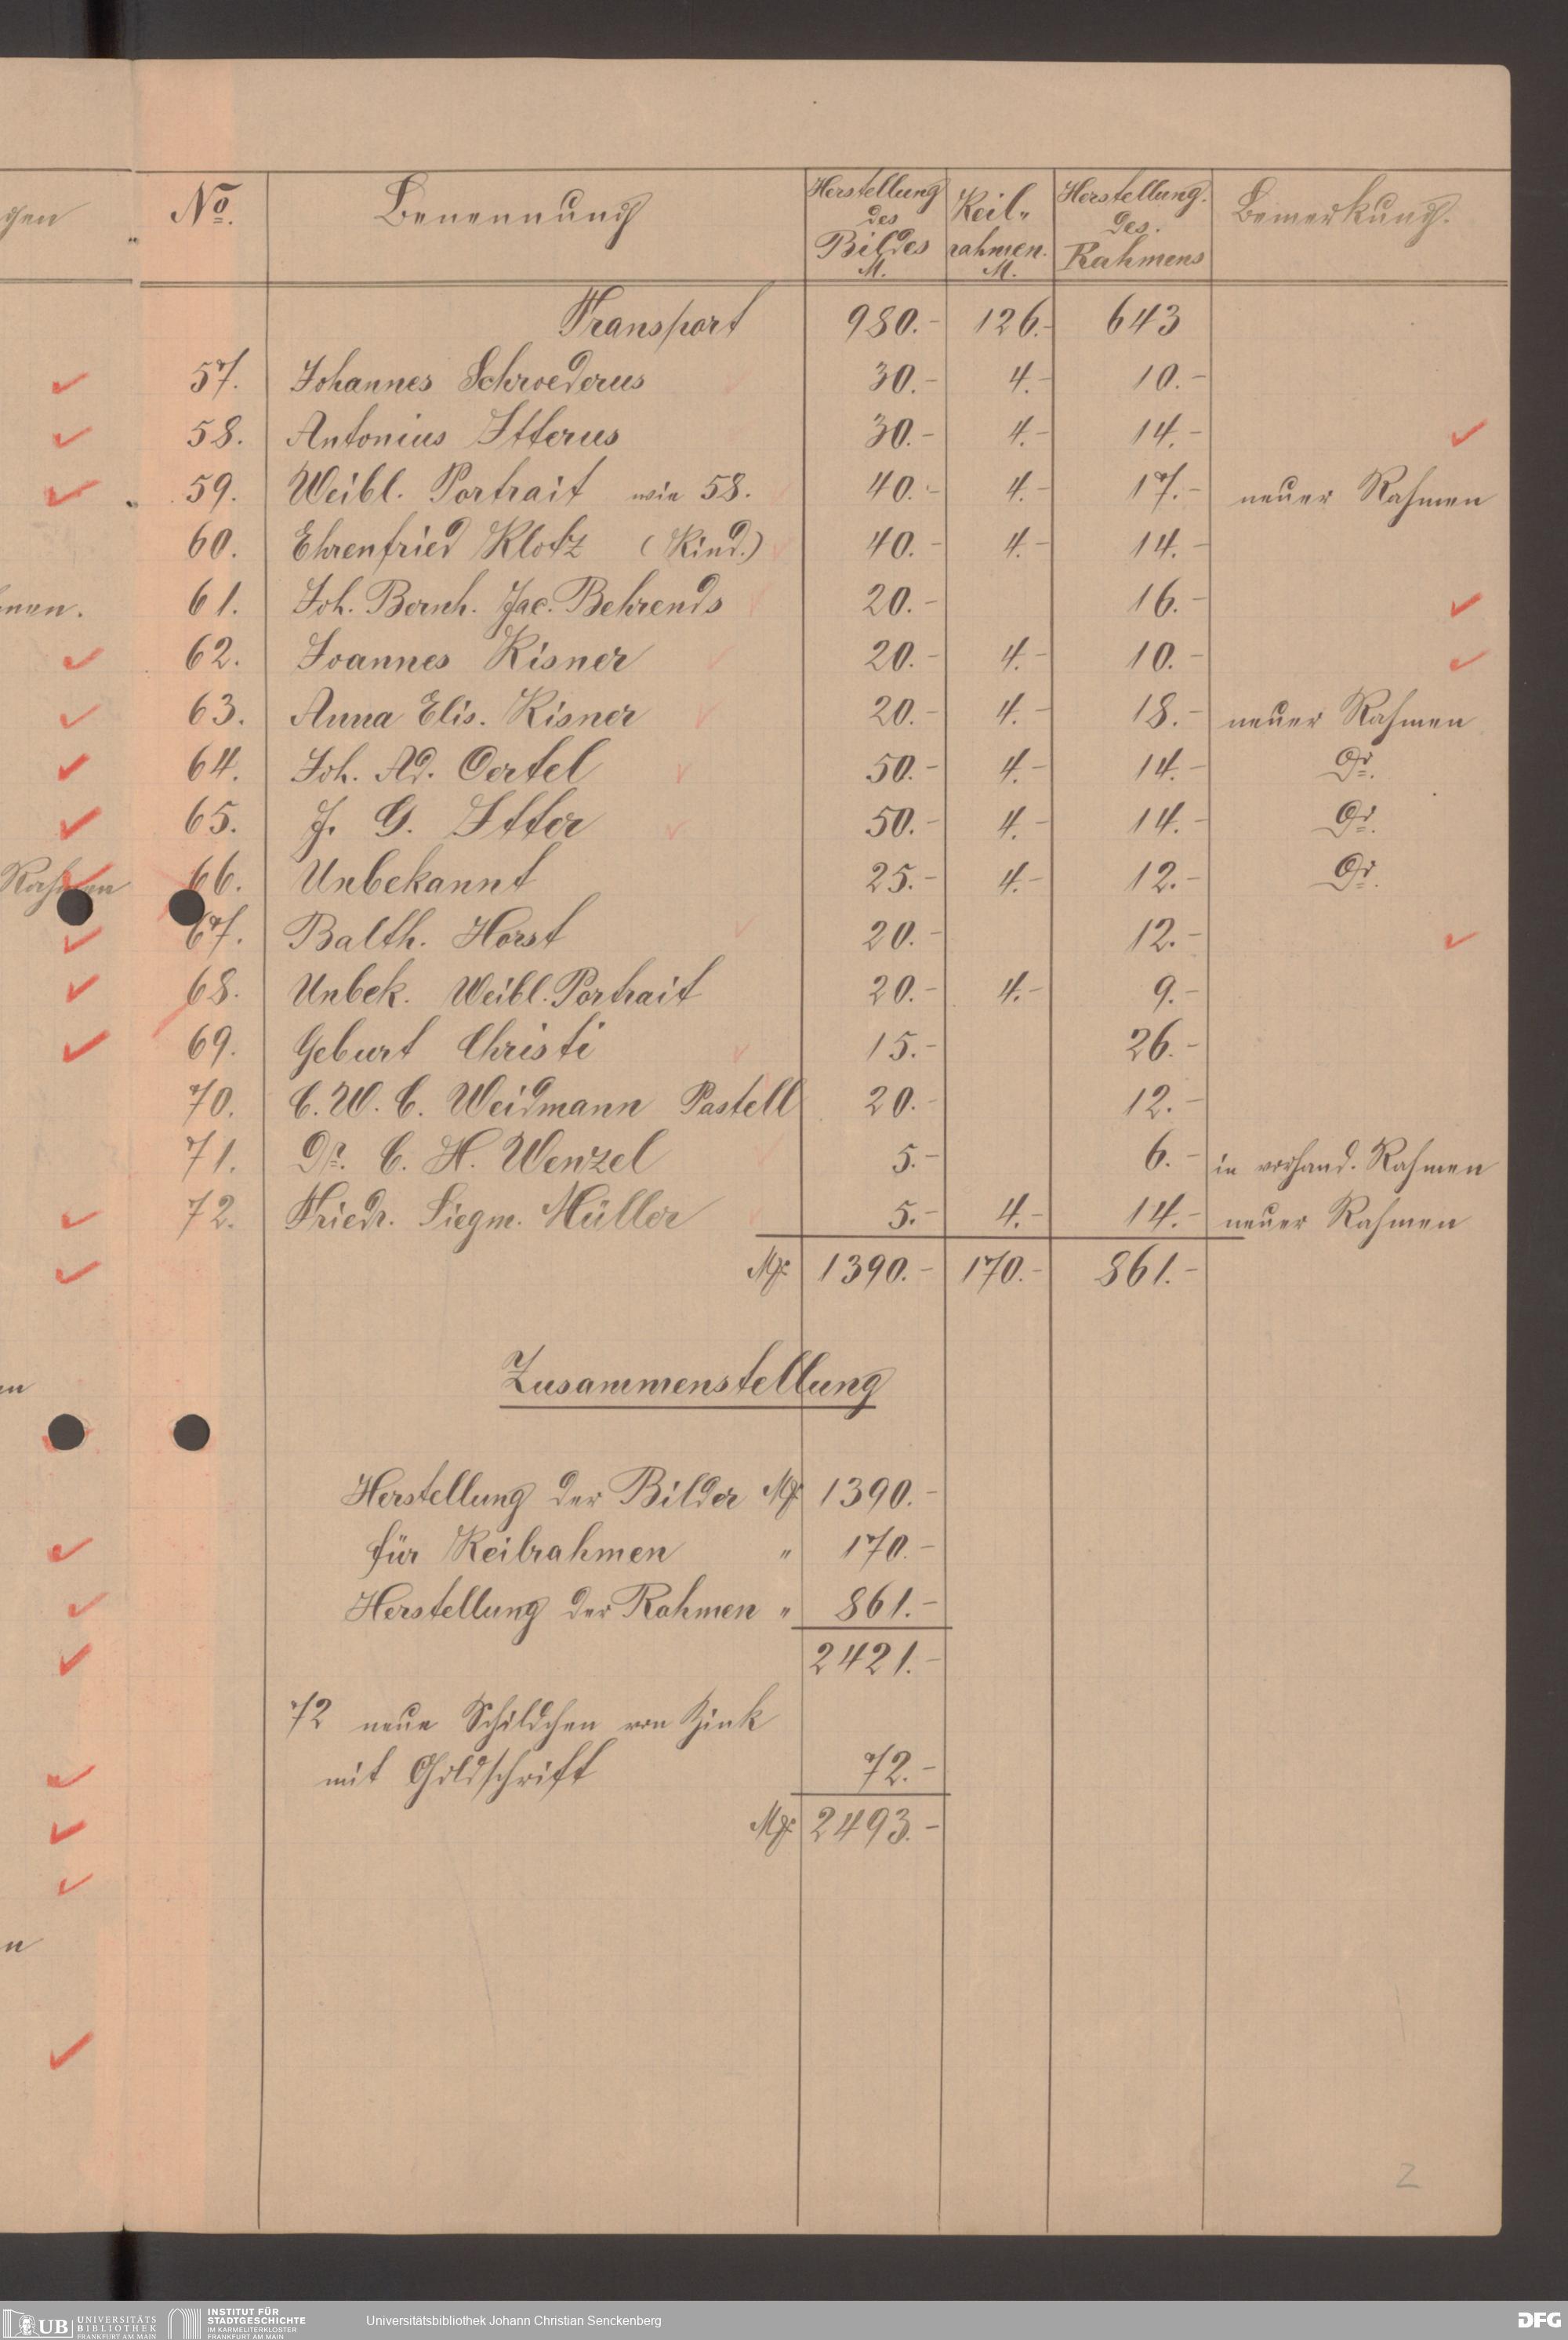 gen
No. Benennung Herstellung des Bildes M. Keil- rahmen. M. Herstellung. des. Rahmens Bemerkung.
Transport 980.- 126.- 643
57. Johannes Schroederus 30.- 4.- 10.-
58. Antonius Itterus 30.- 4.- 14.-
59. Weibl. Portrait wie 58. 40.- 4.- 17.- neuer Rahmen
60. Ehrenfried Klotz (Kind.) 40.- 4.- 14.-
61. Joh. Bernh. Jac. Behrends 20.- 16.-
62. Joannes Kisner 20.- 4.- 10.-
63. Anna Elis. Kisner 20.- 4.- 18.- neuer Rahmen
64. Joh. Ad. Oertel 50.- 4.- 14.- Do.
65. J. G. Itter 50.- 4.- 14.- Do.
Rahmen
66. Unbekannt 25.- 4.- 12.- Do.
67. Balth. Horst 20.- 12.-
68. Unbek. Weibl. Portrait 20.- 4.- 9.-
69. Geburt Christi 15.- 26.-
70. C. W. C. Weidmann Pastell 20.- 12.-
71. Dr. C. H. Wenzel 5.- 6.- in vorhand. Rahmen
72. Friedr. Siegm. Müller 5.- 4.- 14.- neuer Rahmen
Mk: 1390.- 170.- 861.-
Zusammenstellung
Herstellung der Bilder Mk 1390.-
für Keilrahmen " 170.-
Herstellung der Rahmen " 861.-
2421.-
72 neue Schildchen von Zink
mit Goldschrift 72.-
Mk: 2493.-
2
UB UNIVERSITÄTS
BIBLIOTHEK
FRANKFURT AM MAIN
INSTITUT FÜR
STADTGESCHICHTE
IM KARMELITERKLOSTER
FRANKFURT AM MAIN
Universitätsbibliothek Johann Christian Senckenberg
DFG